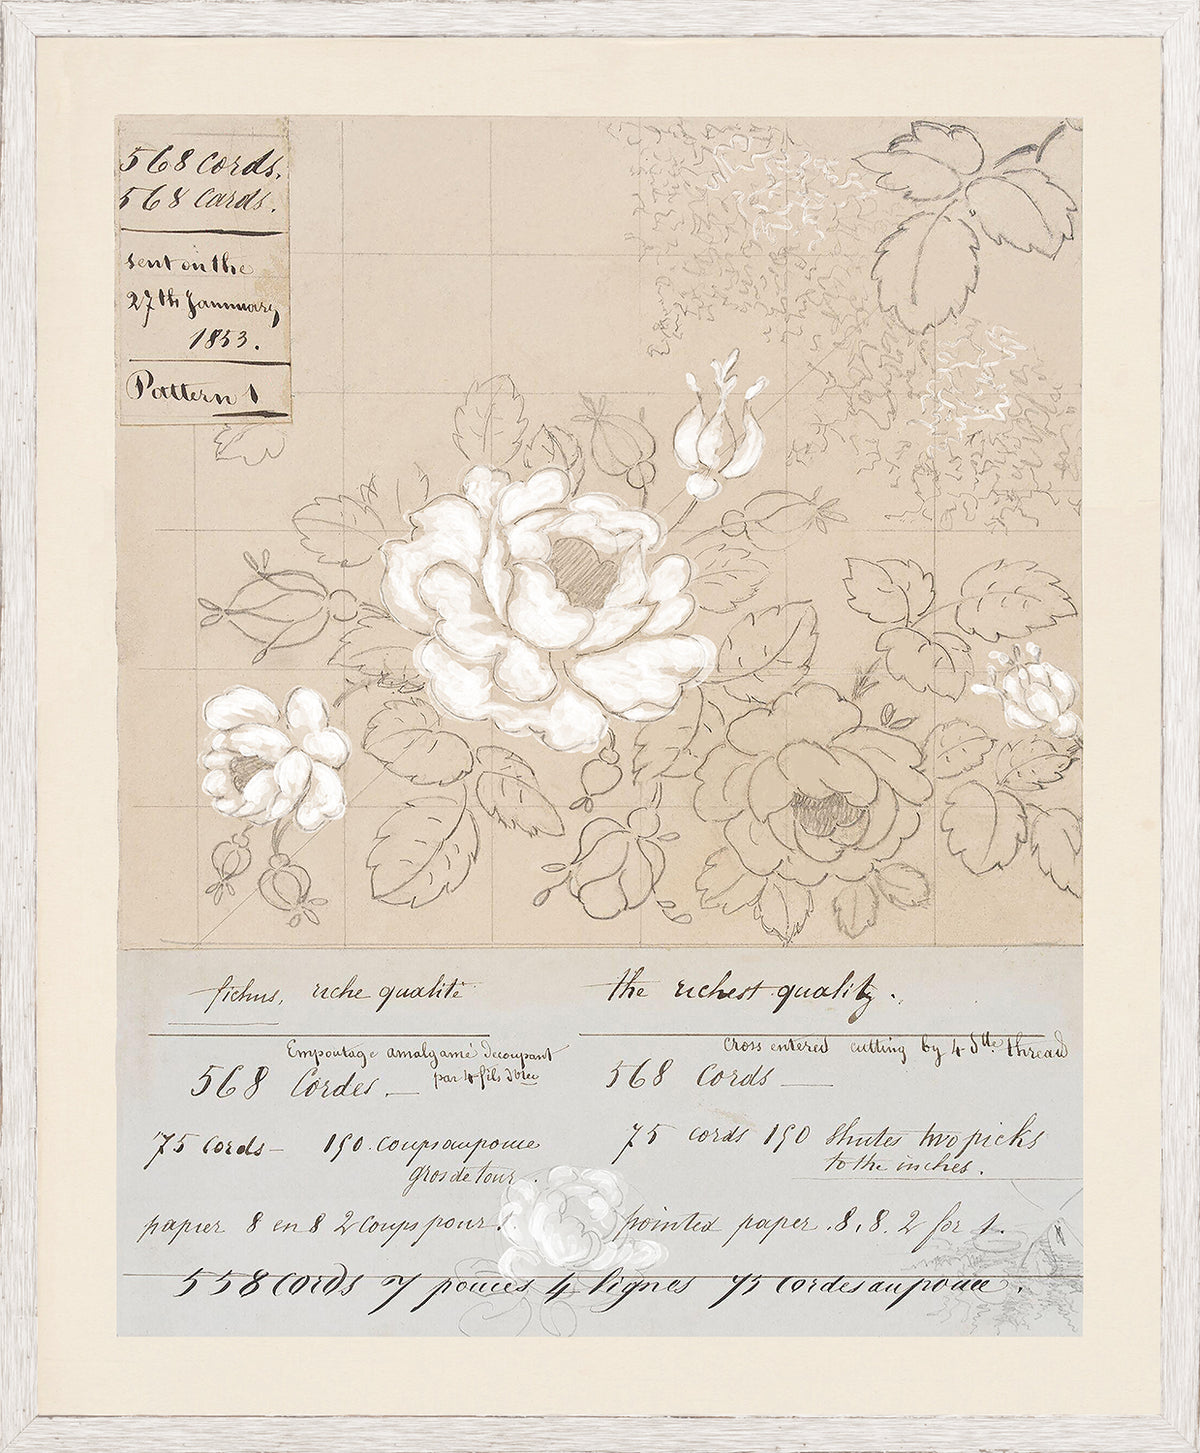 568 Cords.
568 Cards.
sent on the
27th Jannuary
1853.
Pattern 1
fichus, riche qualité
Empoutage amalgamé decoupant
568 Cordes.
par 4 fils
75 Cords 190. coups au pouce
gros de tour.
papier 8 en 8 2 Coups pour 1.
the richest quality.
Cross entered cutting by 4 thread
568 Cords
75 cords 190 Shutes two picks
to the inches.
pointed paper. 8, 8. 2 for 1.
558 Cords 7 pouces 4 lignes 75 Cordes au pouce.